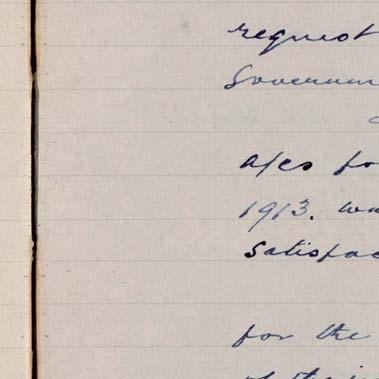 request
Governm
a/cs fo
1913. wa
Satisfac
for the
of the